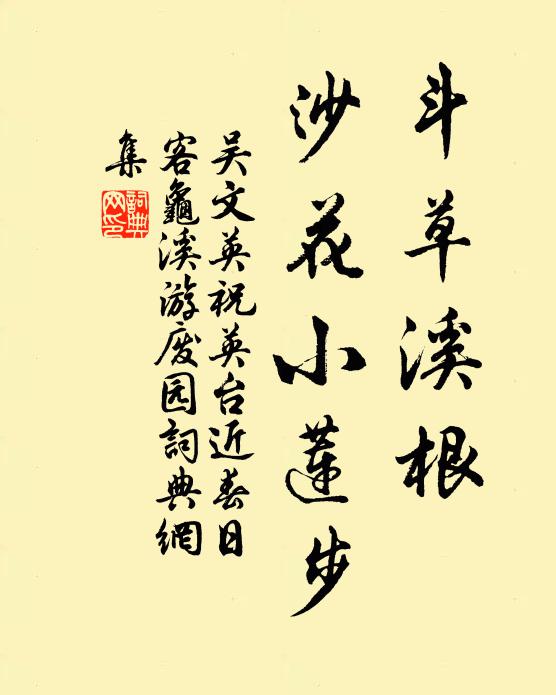 斗草溪根
沙花小莲步
吴文英祝英台近春日
客龜溪游废园詞典網
集
詞典网印